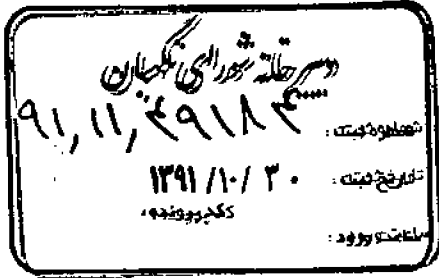 دبیرخانه شورای نگهبان
شماره ثبت: ۹۱,۱۱,۴۹۱۸۴
تاریخ ثبت: ۱۳۹۱/۱۰/۳۰
کد پرونده:
ساعت ورود: